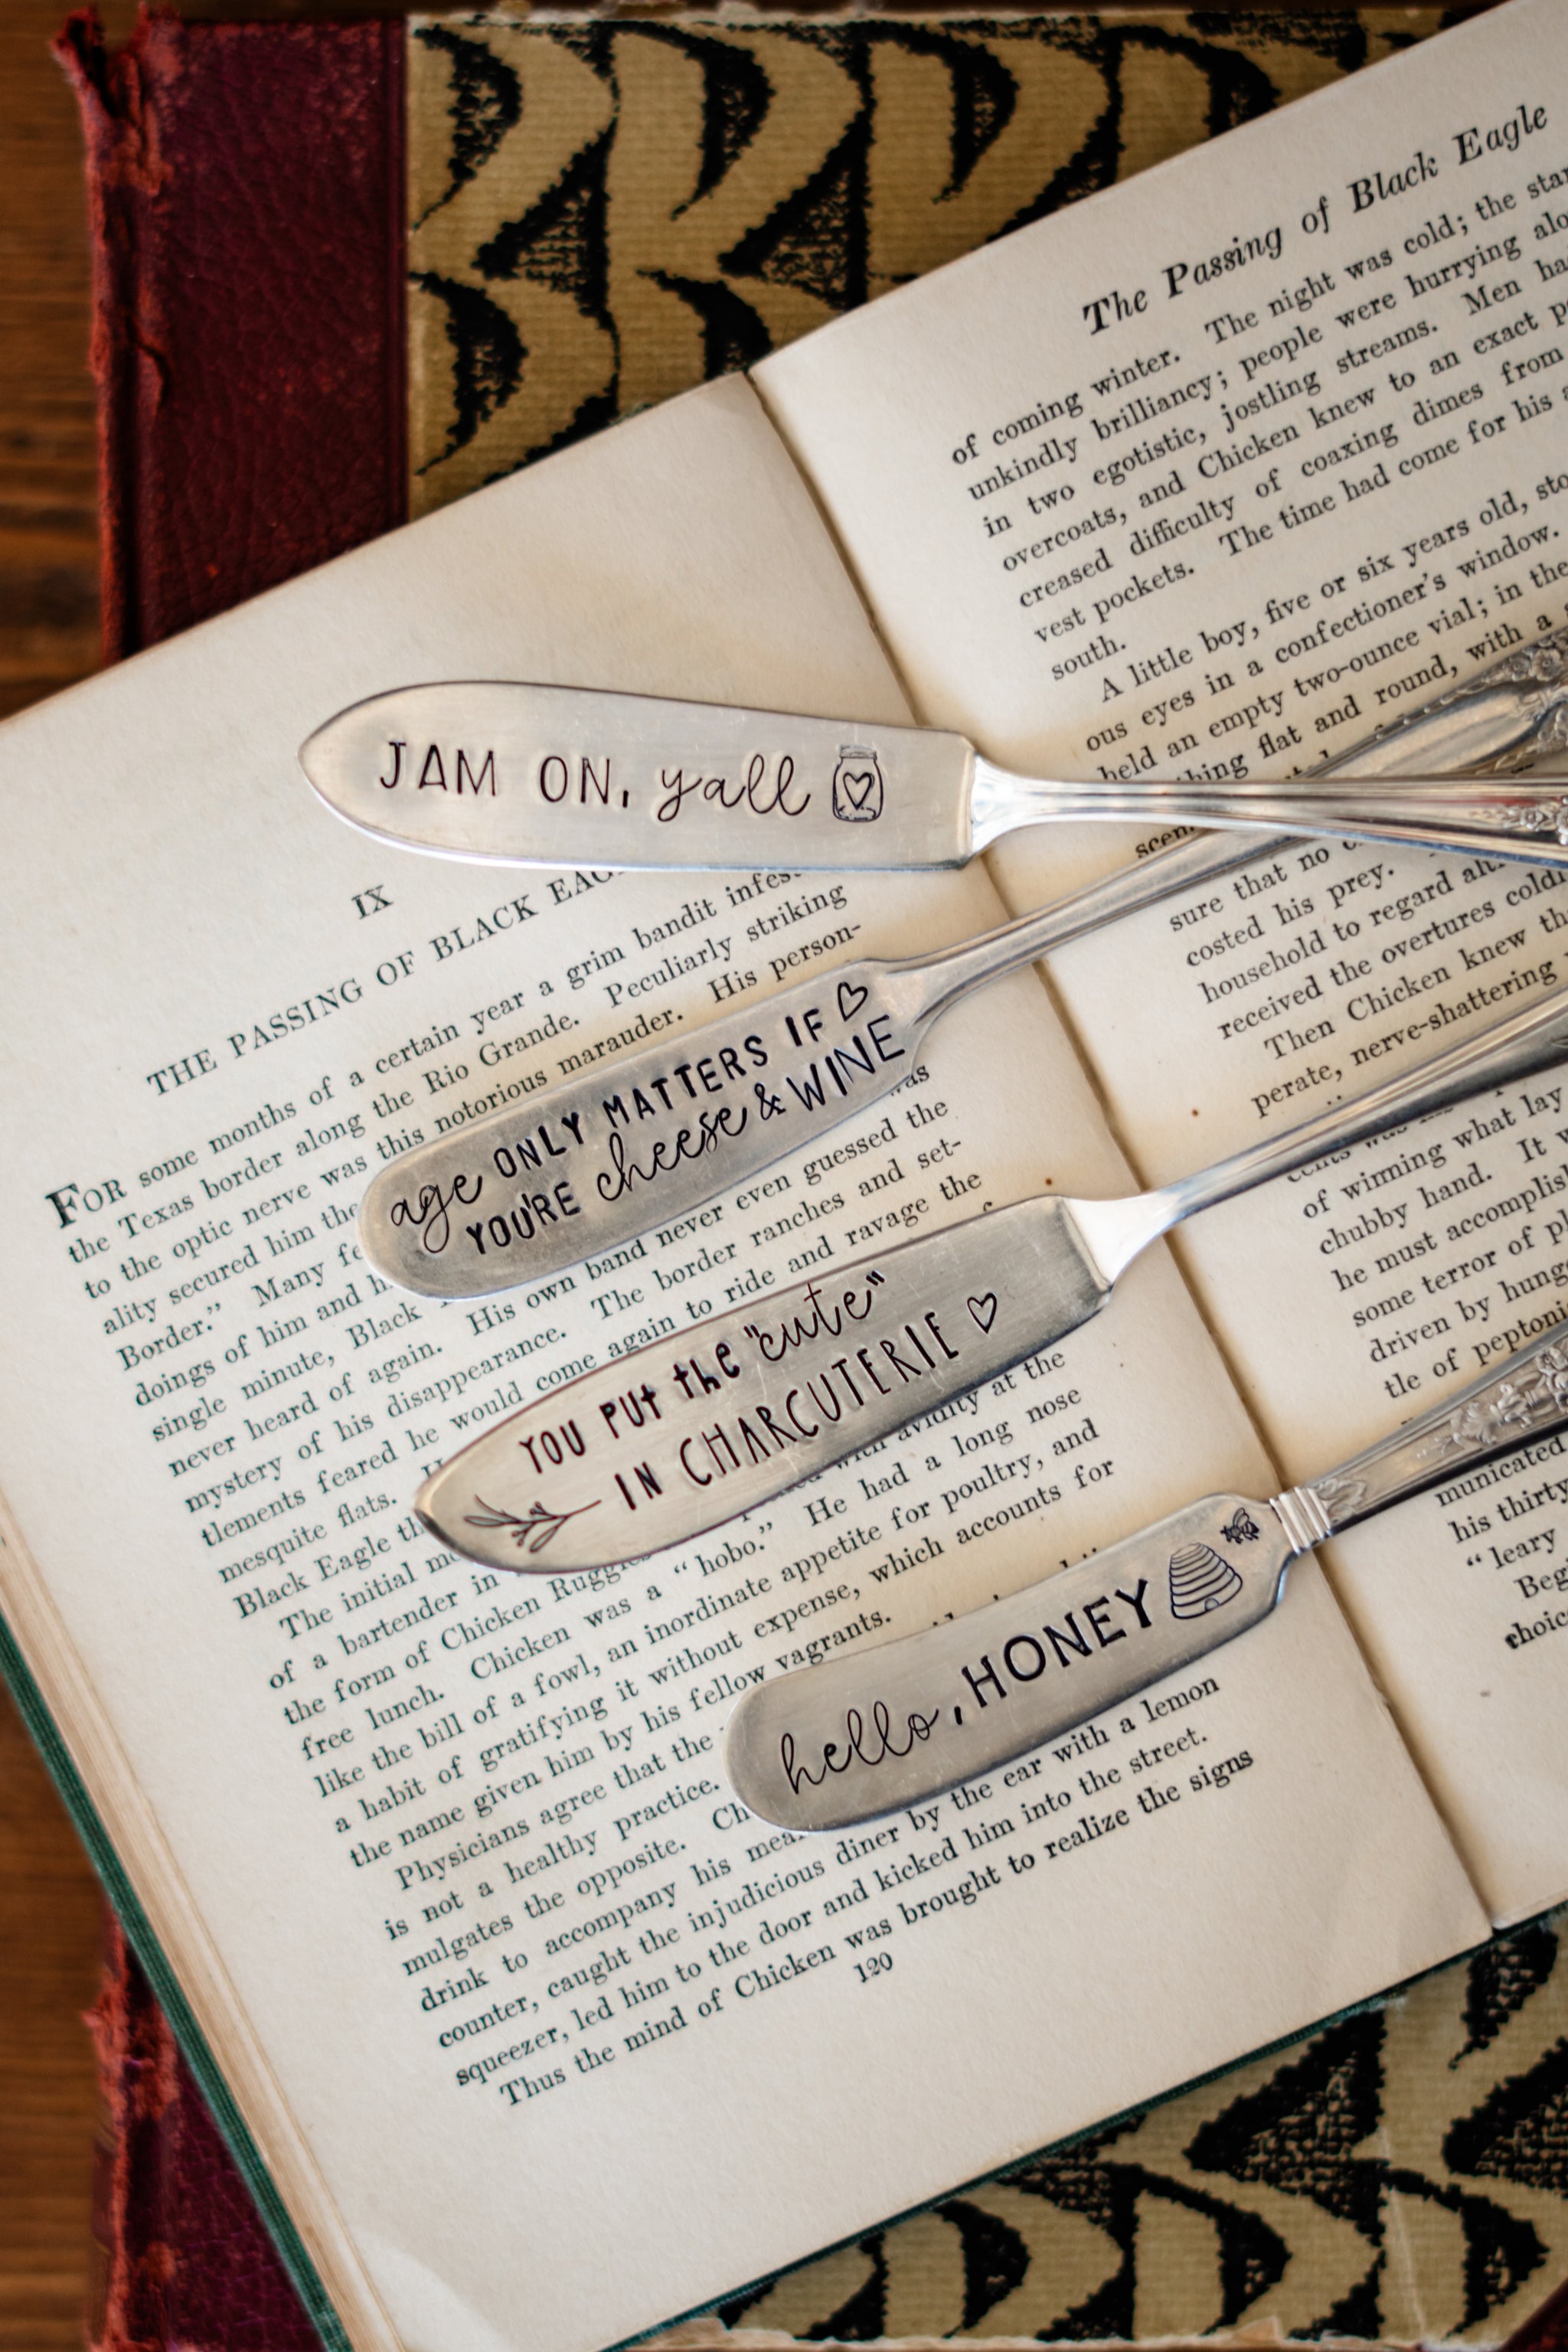 JAM ON, yall
age ONLY MATTERS IF
YOU'RE cheese & WINE
YOU PUt the "cute"
IN CHARCUTERIE
hello, HONEY
IX
THE PASSING OF BLACK EAG
FOR some months of a certain year a grim bandit infes
the Texas border along the Rio Grande. Peculiarly striking
to the optic nerve was this notorious marauder. His person-
ality secured him the
Border." Many
was
doings of him and
His own band never even guessed the
single minute, Black
The border ranches and set-
never heard of again.
mystery of his disappearance.
tlements feared he would come again to ride and ravage the
mesquite flats.
Black Eagle
The initial
with avidity at the
of a bartender in
He had a long nose
the form of Chicken Ruggles
free lunch. Chicken was a "hobo."
like the bill of a fowl, an inordinate appetite for poultry, and
a habit of gratifying it without expense, which accounts for
the name given him by his fellow vagrants.
Physicians agree that the
is not a healthy practice.
mulgates the opposite.
drink to accompany his
counter, caught the injudicious diner by the ear with a lemon
squeezer, led him to the door and kicked him into the street.
Thus the mind of Chicken was brought to realize the signs
120
The Passing of Black Eagle
of coming winter. The night was cold; the
unkindly brilliancy; people were hurrying
in two egotistic, jostling streams. Men
overcoats, and Chicken knew to an exact
creased difficulty of coaxing dimes from
vest pockets. The time had come for his
south.
A little boy, five or six years old,
ous eyes in a confectioner's window.
held an empty two-ounce vial; in the
thing flat and round, with a
sure that no
costed his prey.
household to regard
received the overtures
Then Chicken knew
perate, nerve-shattering
of winning what lay
chubby hand. It
he must accomplish
some terror of
driven by
tle of
municated
his thirty
"leary
Beg
choic